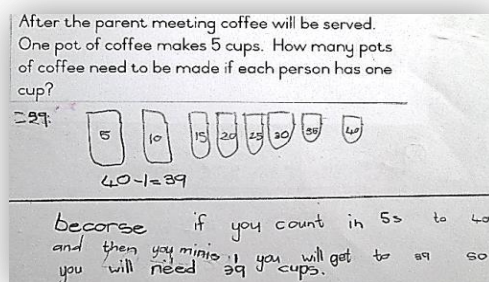 After the parent meeting coffee will be served.
One pot of coffee makes 5 cups. How many pots
of coffee need to be made if each person has one
cup?
5 10 15 20 25 30 35 40
40-1=39
becorse if you count in 5s to 40
and then you minis 1 you will get to 39 so
you will need 39 cups.